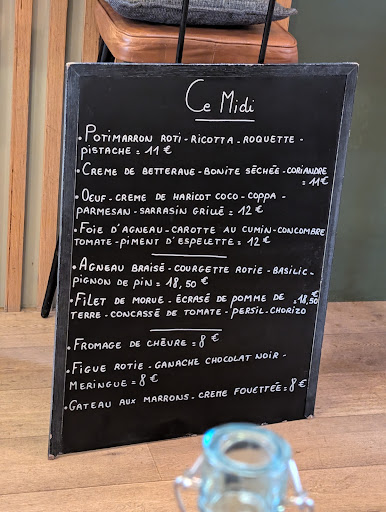 Ce Midi
• Potimarron roti - ricotta - roquette -
pistache = 11 €
• Creme de betterave - bonite séchée - coriandre
= 11€
• Oeuf - creme de haricot coco - coppa -
parmesan - sarrasin grillé = 12 €
• Foie d'agneau - carotte au cumin - concombre
tomate - piment d'espelette = 12 €
• Agneau braisé - courgette rotie - basilic -
pignon de pin = 18,50
• Filet de morue - écrasé de pomme de = 18,50 €
terre - concassé de tomate - persil - chorizo
• Fromage de chèvre = 8 €
• Figue rotie - ganache chocolat noir -
meringue = 8 €
• Gateau aux marrons - creme fouettée = 8 €